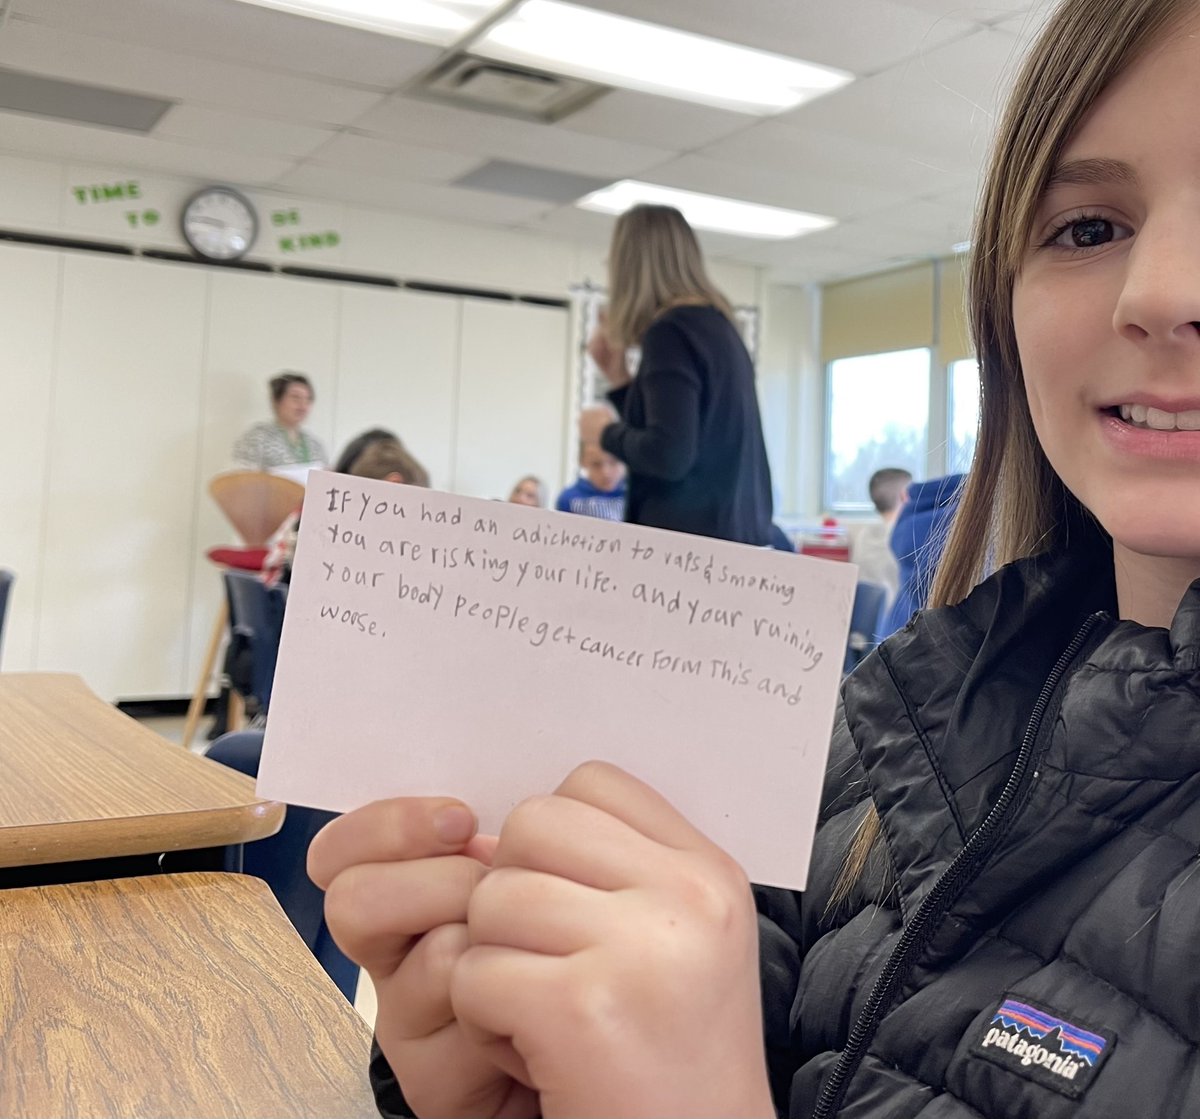 TIME
TO
BE
KIND
If you had an adichetion to vaps & smoking
You are risking your life. and your ruining
Your body people get cancer form This and
woose.
patagonia